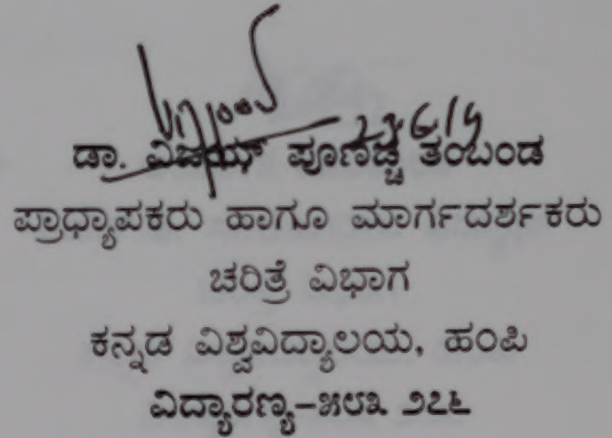 ಡಾ. ವಿಜಯ್ ಪೂಣಚ್ಚ ತಂಬಂಡ
ಪ್ರಾಧ್ಯಾಪಕರು ಹಾಗೂ ಮಾರ್ಗದರ್ಶಕರು
ಚರಿತ್ರೆ ವಿಭಾಗ
ಕನ್ನಡ ವಿಶ್ವವಿದ್ಯಾಲಯ, ಹಂಪಿ
ವಿದ್ಯಾರಣ್ಯ-೫೮೩ ೨೭೬